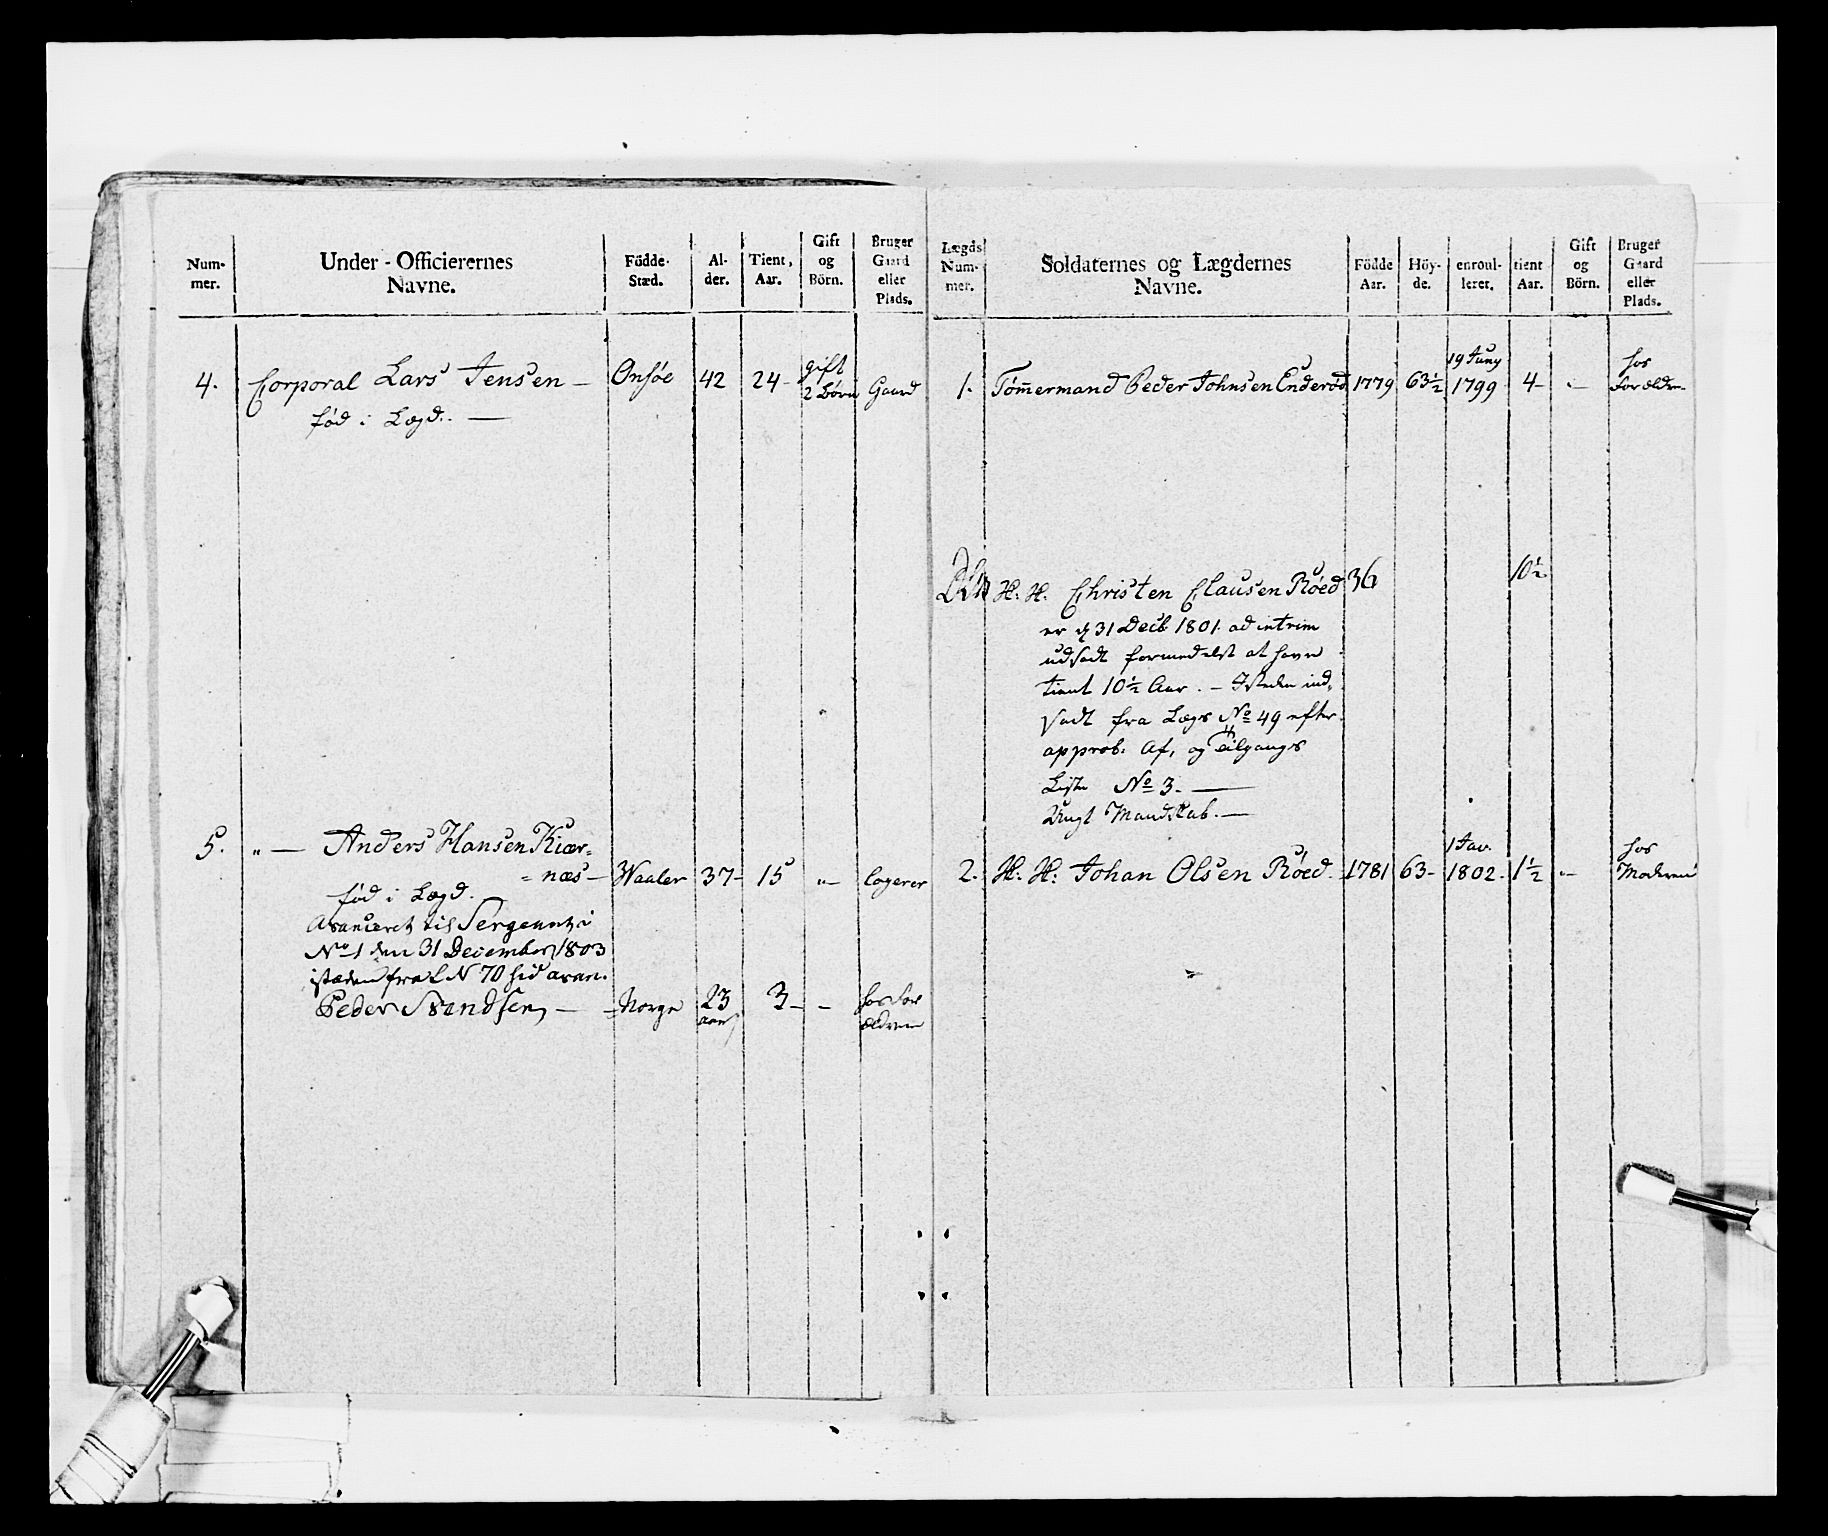 Num-
mer.
Under-Officierernes
Navne.
Födde-
Stæd.
Al-
der.
Tient,
Aar.
Gift
og
Börn.
Bruger
Gaard
eller
Plads.
4. Corporal Lars Jensen — Onsøe 42 24- gift 2 Børn Gaard
fød i Lægd. —
5. " — Anders Hansen Kiær-
= næs — Waaler 37- 15 "- logerer
fød i Lægd.
Avanceret til Sergeant i
No 1 den 31 December 1803
istæden fra L N 70 hid avan.
Peder Svendsen — - Norge 23 aar 3 - - hos For ældrene
Lægds
Num-
mer.
Soldaternes og Lægdernes
Navne.
Födde
Aar.
Höy-
de.
enroul-
leret.
tient
Aar.
Gift
og
Börn.
Bruger
Gaard
eller
Plads.
1. Tømmermand Peder Johnsen Enderød 1779 63½ 19 Juny 1799 4- "- hos Forældre-
H. H. Christen Clausen Røed 36 10½
er d 31 Decb 1801. ad intrim
udsadt formedelst at have
tient 10½ Aar. - Isteden ind-
sadt fra Lægs No 49 efter
approb: Af, og Tilgangs
Liste No 3. —
Ungt Mandskab. —
2. H. H: Johan Olsen Røed. 1781 63- 1 Jav. 1802. 1½ "- hos Moderen